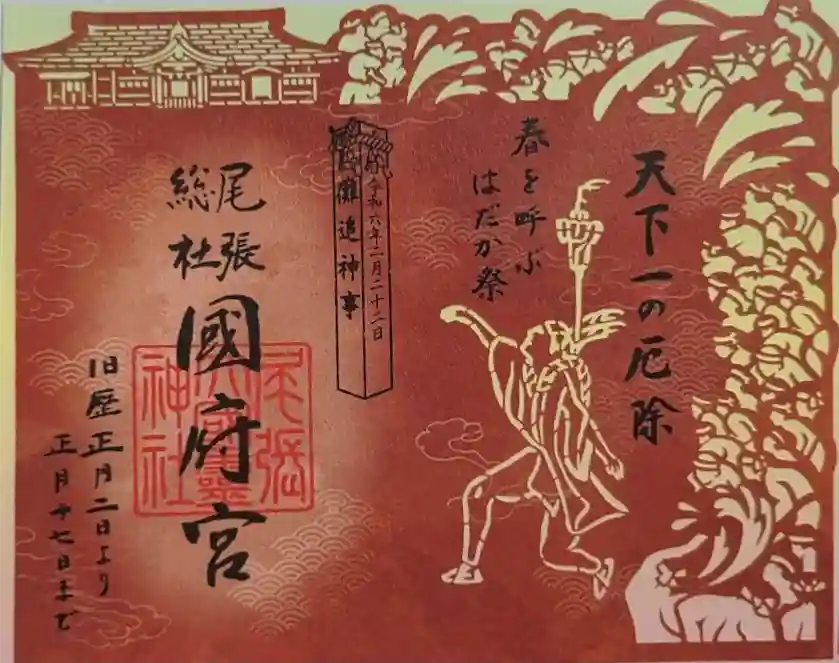 天下一の厄除
春を呼ぶ
はだか祭
令和六年二月二十二日
儺追神事
尾張
総社
國府宮
尾張
大國霊
神社
旧歴正月二日より
正月十七日まで